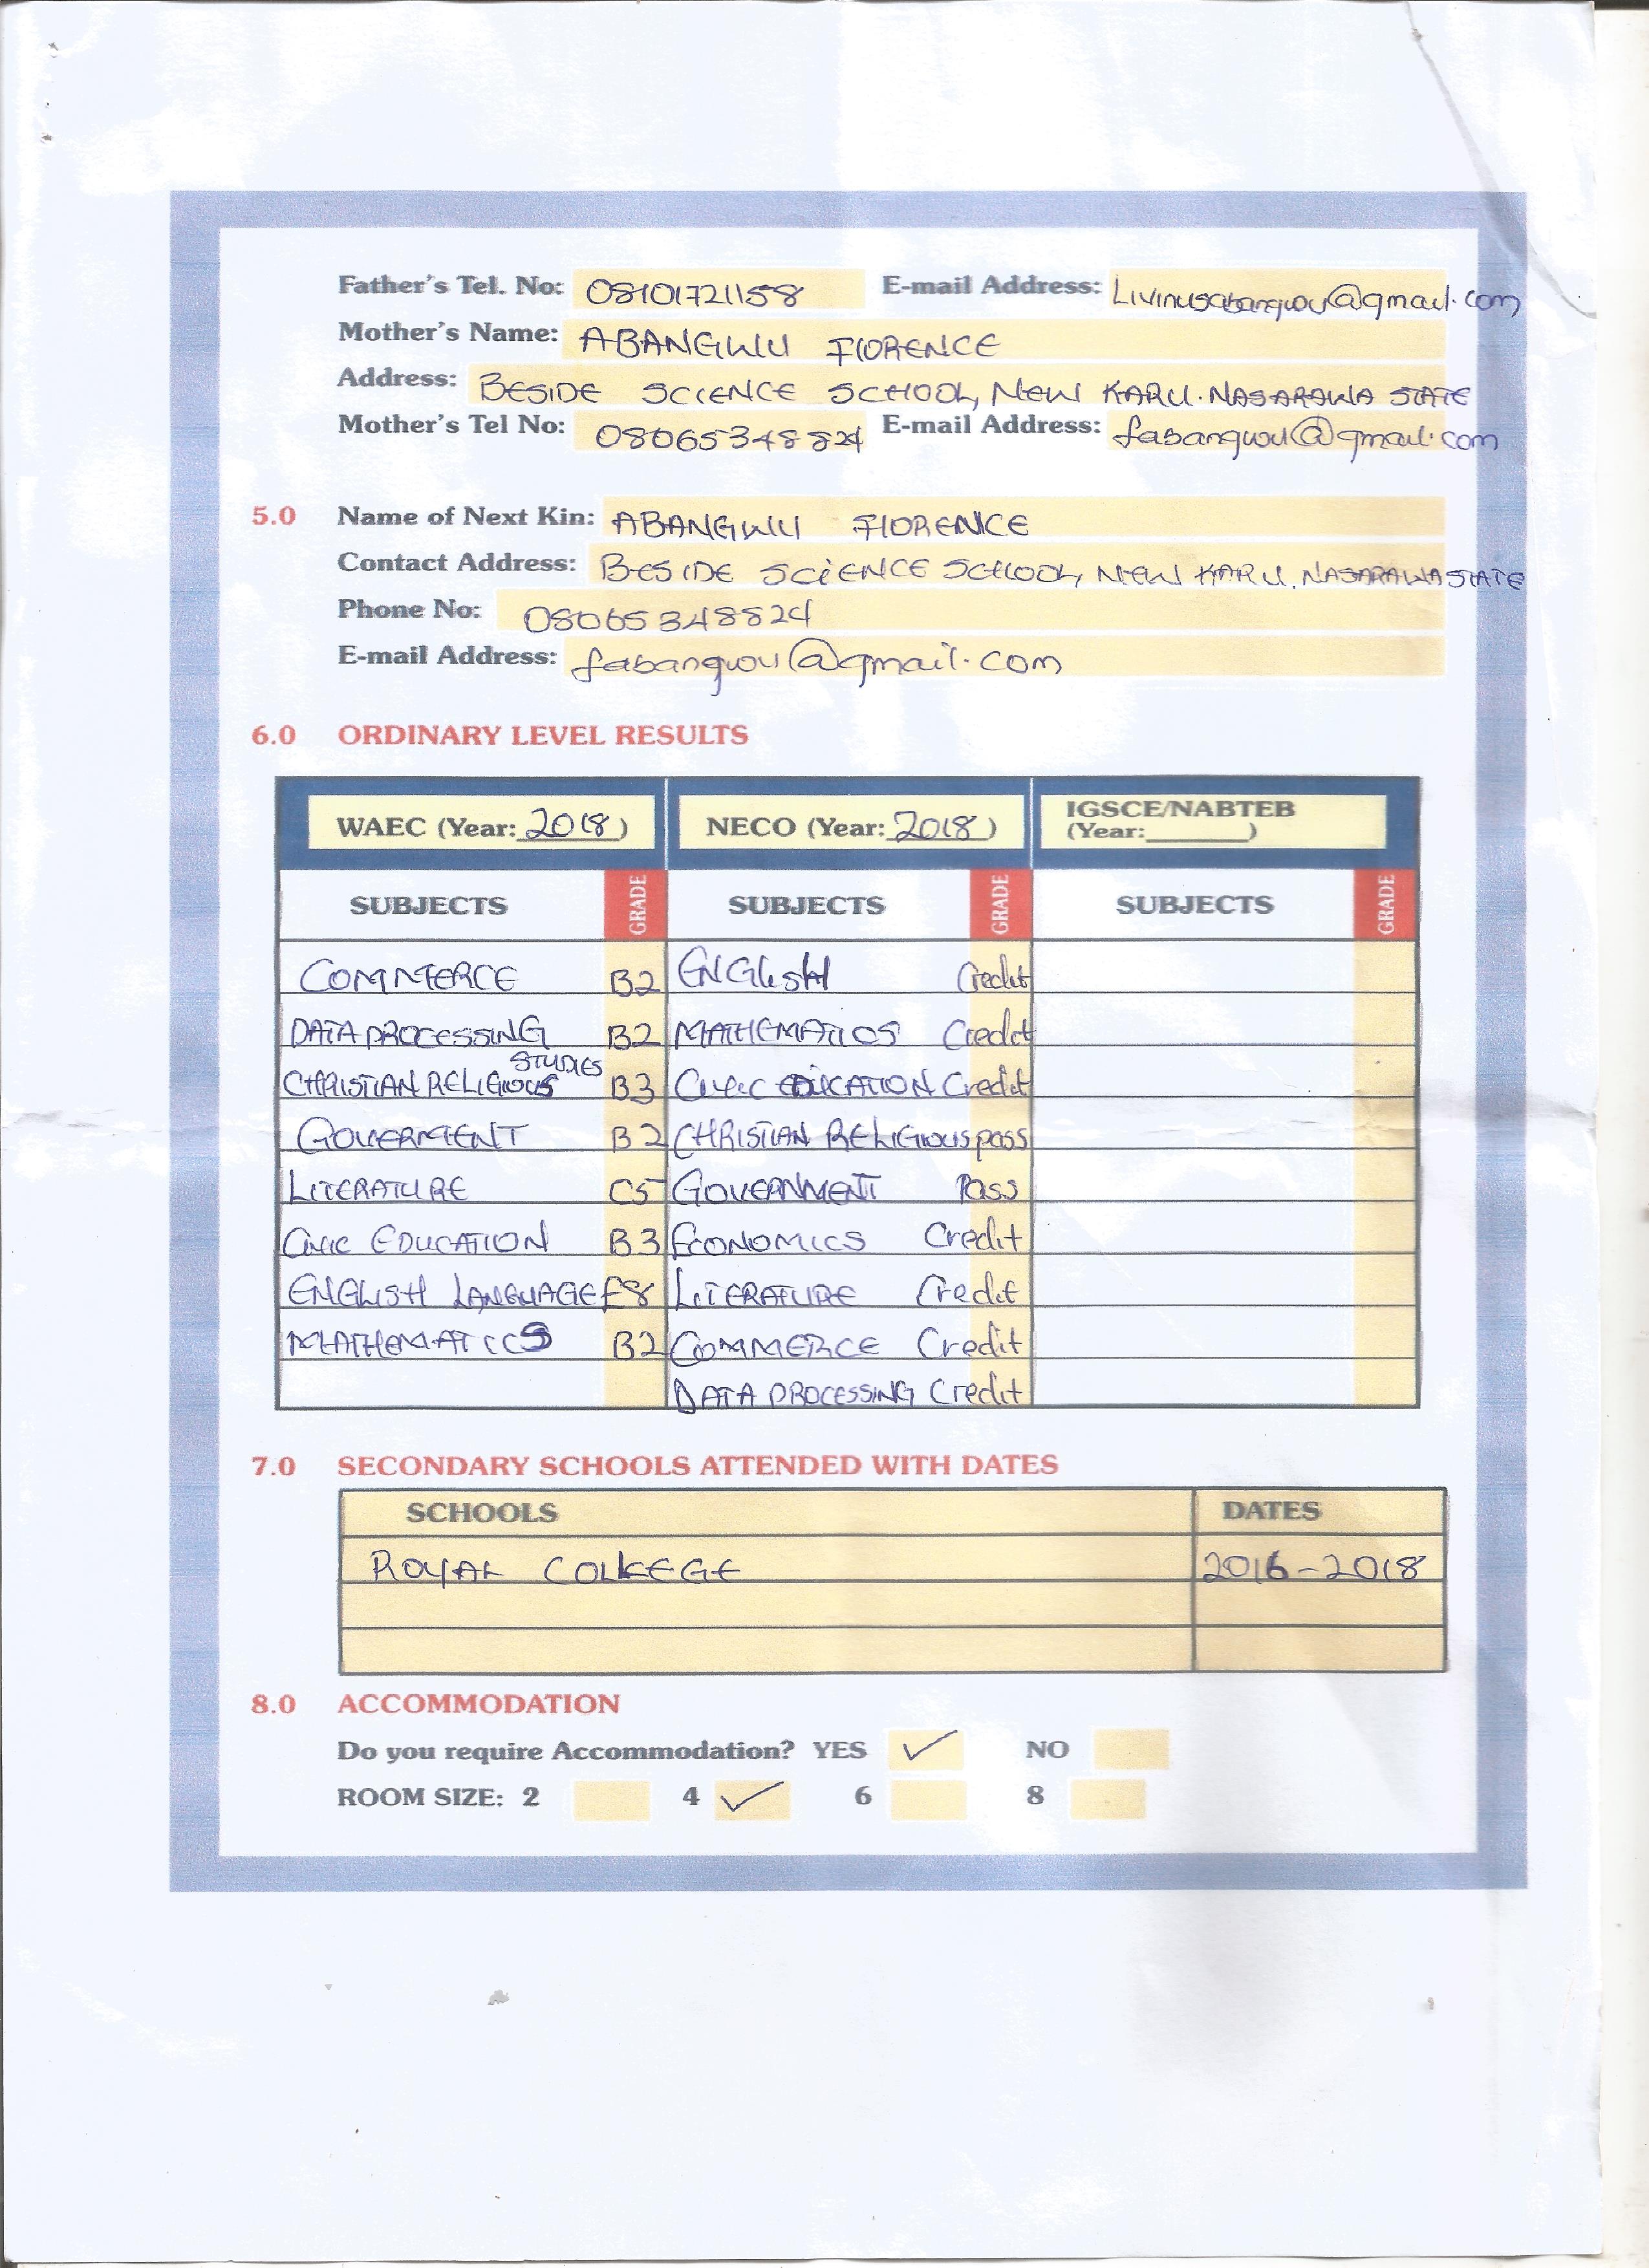 Father's Tel. No: 08101721158 E-mail Address: Livinusabangwu@gmail.com
Mother's Name: ABANGWU FLORENCE
Address: BESIDE SCIENCE SCHOOL, NEW KARU. NASARAWA STATE
Mother's Tel No: 08065348824 E-mail Address: fabangwu@gmail.com
5.0 Name of Next Kin: ABANGWU FLORENCE
Contact Address: BESIDE SCIENCE SCHOOL, NEW KARU. NASARAWA STATE
Phone No: 08065348824
E-mail Address: fabangwu@gmail.com
6.0 ORDINARY LEVEL RESULTS
WAEC (Year: 2018) NECO (Year: 2018) IGSCE/NABTEB
(Year:______)
SUBJECTS GRADE SUBJECTS GRADE SUBJECTS GRADE
COMMERCE B2 ENGLISH Credit
DATA PROCESSING B2 MATHEMATICS Credit
CHRISTIAN RELIGIOUS STUDIES B3 Civic EDUCATION Credit
GOVERMENT B2 CHRISTIAN RELIGIOUS pass
LITERATURE C5 GOVERNMENT Pass
Civic EDUCATION B3 ECONOMICS Credit
ENGLISH LANGUAGE E8 LITERATURE Credit
MATHEMATICS B2 COMMERCE Credit
DATA PROCESSING Credit
7.0 SECONDARY SCHOOLS ATTENDED WITH DATES
SCHOOLS DATES
ROYAL COLLEGE 2016-2018
8.0 ACCOMMODATION
Do you require Accommodation? YES ✓ NO
ROOM SIZE: 2 4 ✓ 6 8